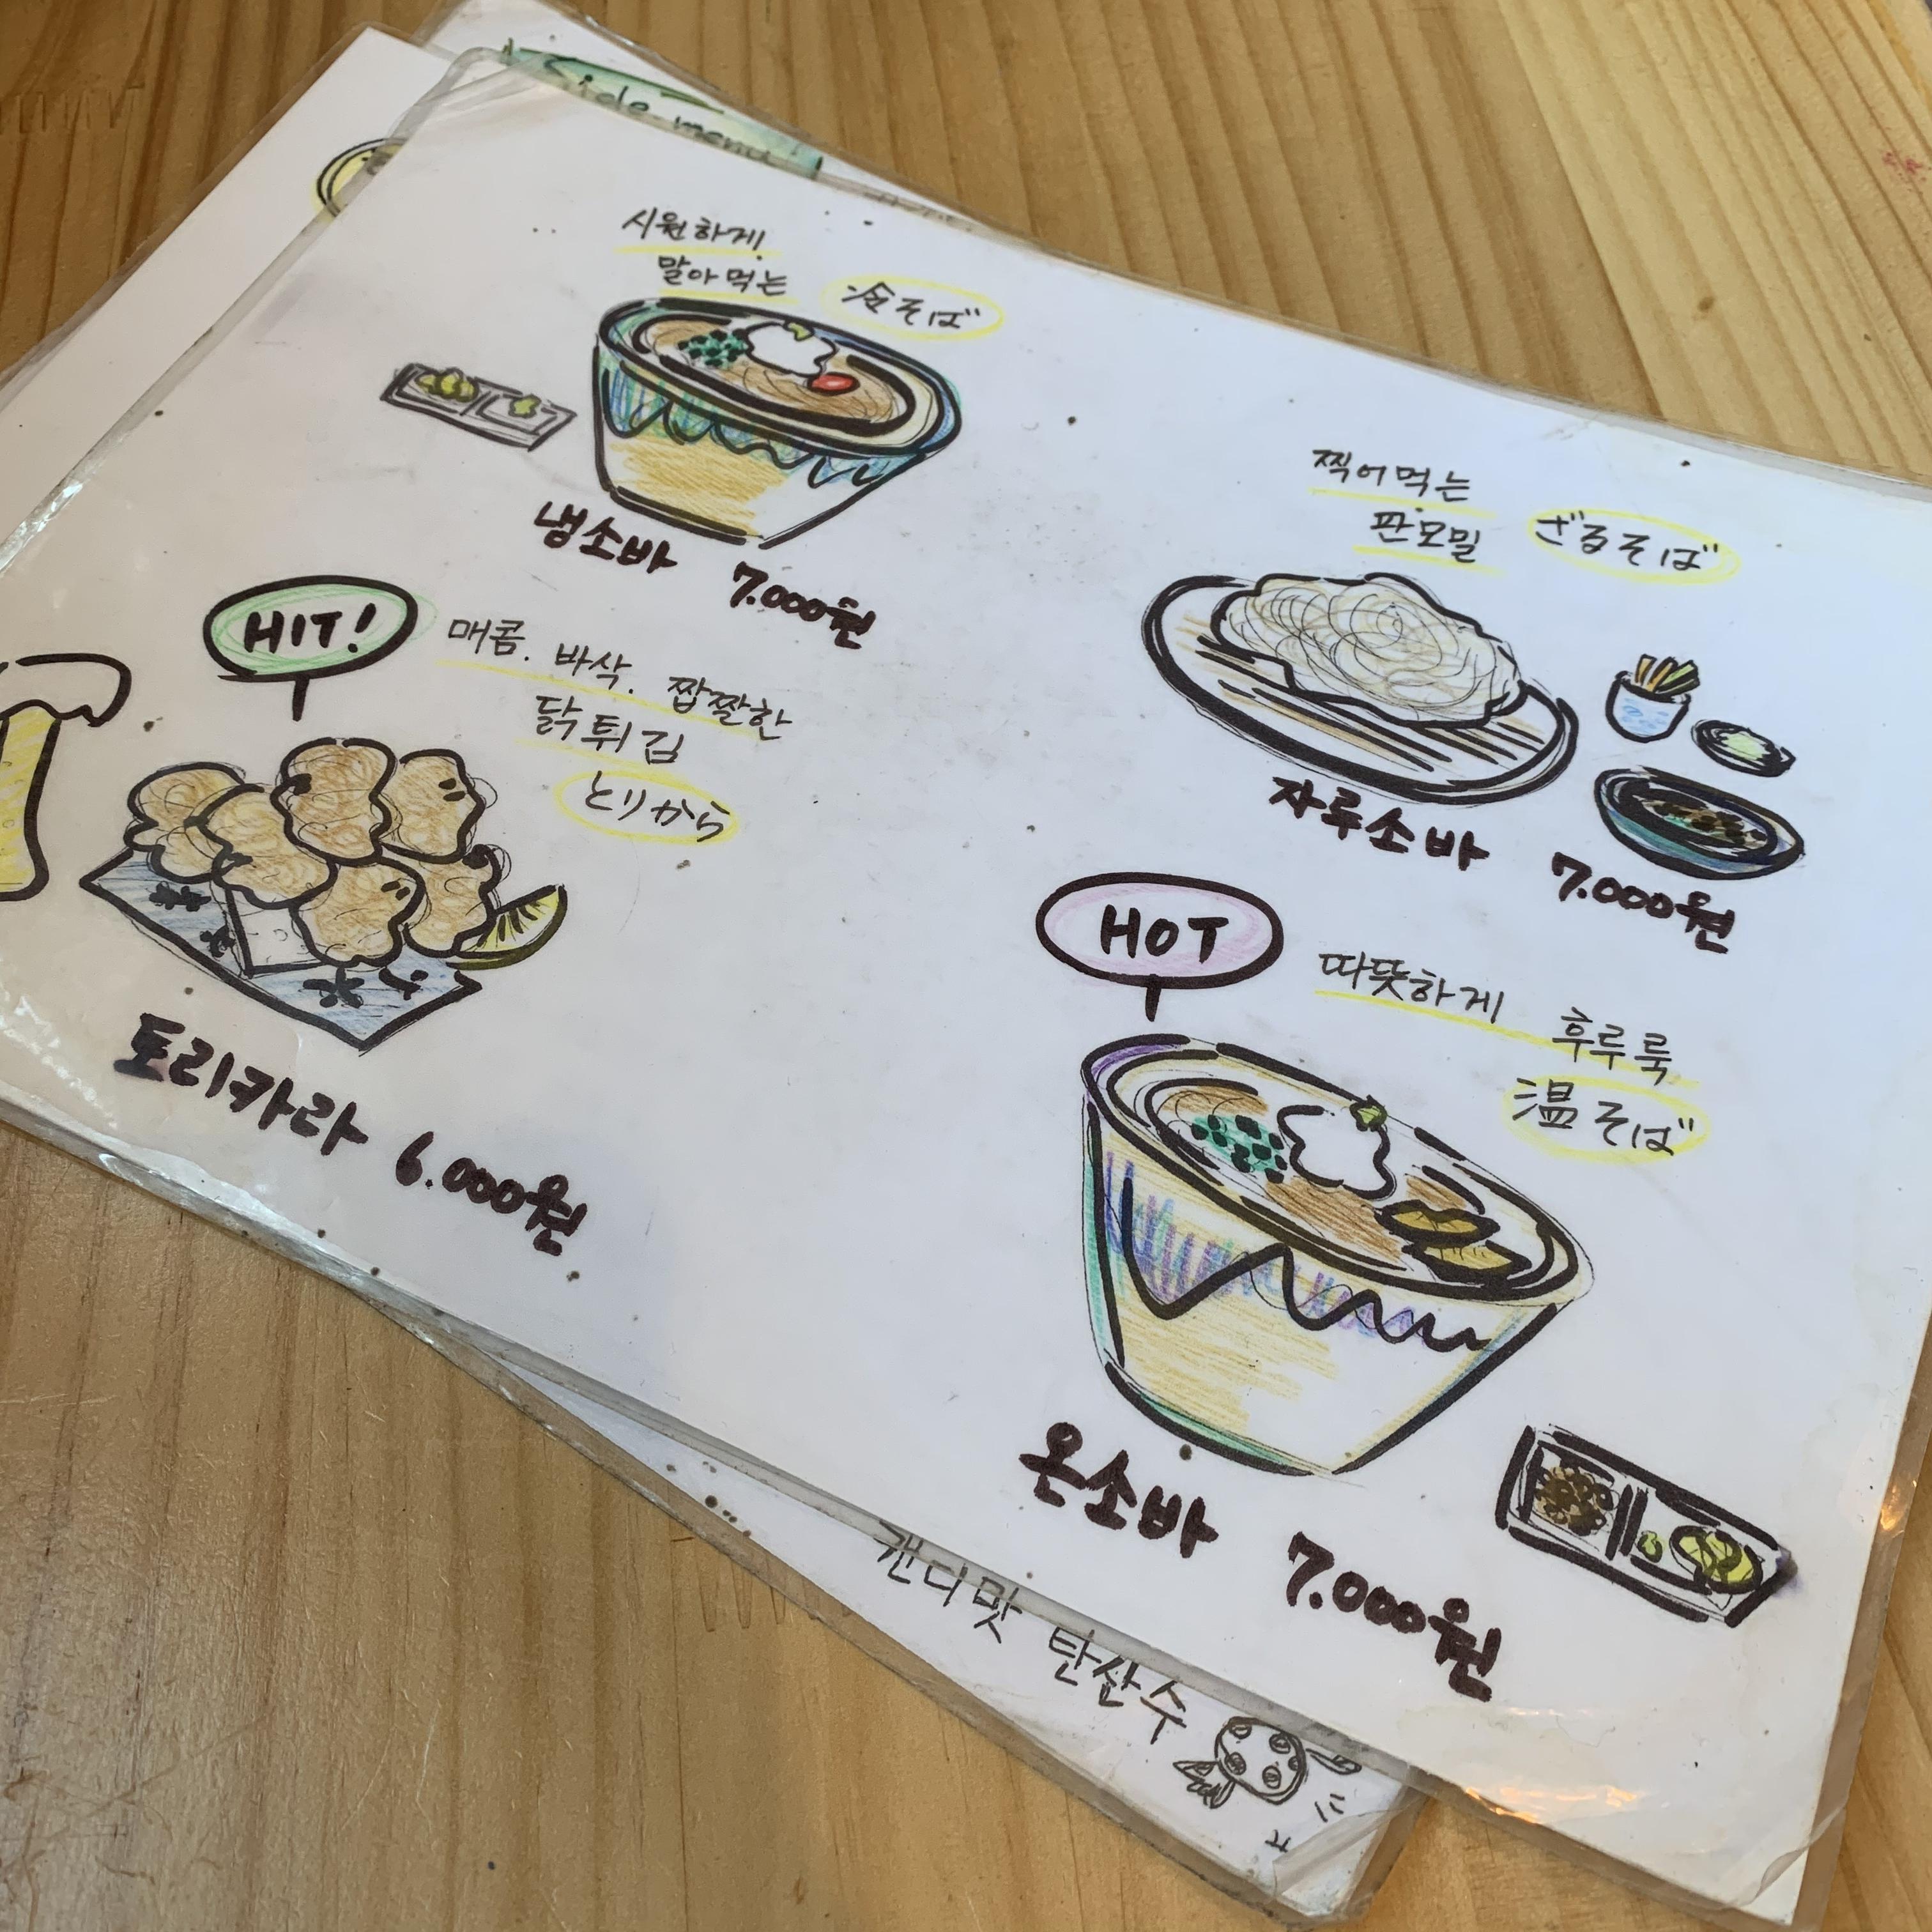 Side-menu
시원하게
말아먹는
冷そば
냉소바 7.000원
찍어먹는
판모밀
ざるそば
자루소바 7.000원
HIT!
매콤. 바삭. 짭짤한
닭튀김
とりから
토리카라 6.000원
HOT
따뜻하게 후루룩
温そば
온소바 7.000원
캔디맛 탄산수